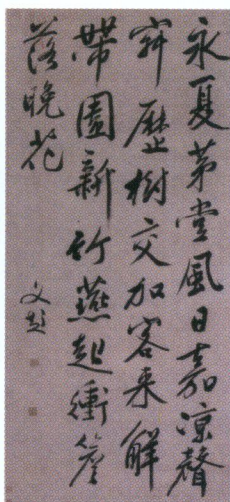 永夏茅堂風日嘉涼聲
寂歷樹交加客來解
帶圍新竹燕起衝簷
落晚花
文